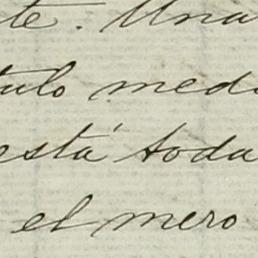 te. Una
tulo medi
está toda
el mero